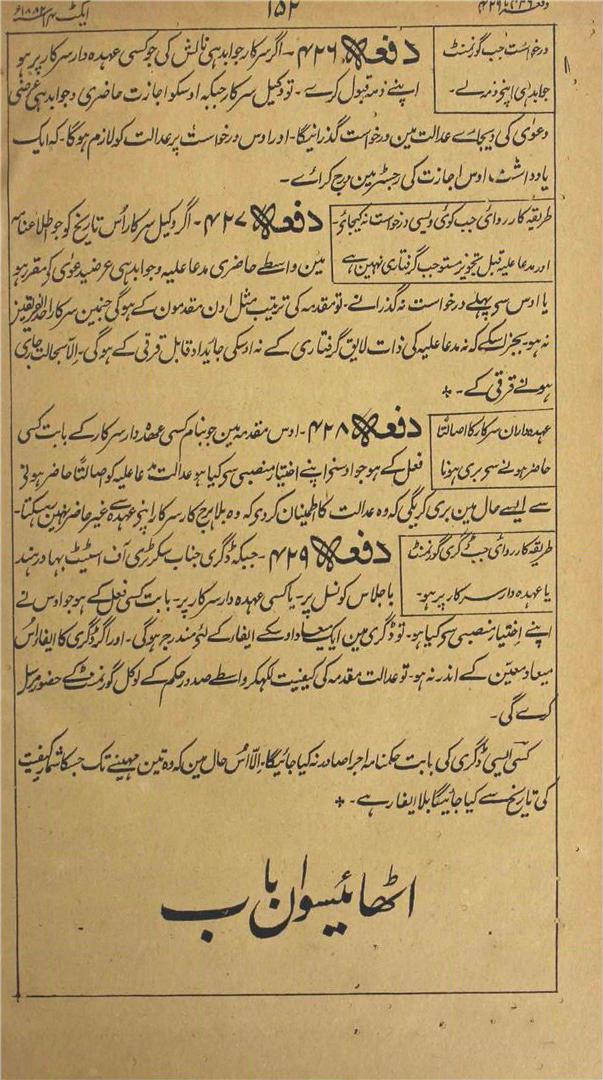 دفعہ ۴۲۶ تا ۴۲۹ ۱۵۲ ایکٹ ۱۴ ۱۸۸۲ع
درخواست جب گورنمنٹ
جوابدہی اپنی ذمہ لے۔
دفعہ ۴۲۶۔ اگر سرکار جوابدہی نالش کی جو کسی عہدہ دار سرکار پر ہو
اپنے ذمہ قبول کرے۔ تو وکیل سرکار جبکہ اوسکو اجازت حاضری وجوابدہی عرضی
دعوٰی کی دیجاے عدالت مین درخواست گذرانیگا۔ اور اوس درخواست پر عدالت کو لازم ہوگا۔ کہ ایک
یادداشت، اوس اجازت کی رجسٹر مین درج کرائے۔
طریقہ کارروائی جب کوئی ویسی درخواست نہ کیجائے۔
اور مدعا علیہ قبل تجویز مستوجب گرفتاری نہین ہے
دفعہ ۴۲۷۔ اگر وکیل سرکار اُس تاریخ کو جو اطلاعنامہ
مین واسطے حاضری مدعا علیہ وجوابدہی عرضیدعوی کو مقرر ہو
یا اوس سی پہلے درخواست نہ گذرانے۔ تو مقدمہ کی ترتیب مثل اون مقدمون کے ہوگی جنمین سرکار احد الفریقین
نہ ہو۔ بجز اسکے کہ نہ مدعا علیہ کی ذات لایق گرفتاری کے نہ اوسکی جایداد قابل قرقی کے ہوگی۔ اِلّا بحالت جاری
ہونے قرقی کے۔ *
عہدہ داران سرکار کا اصالتًا
حاضر ہونے سی بری ہونا
دفعہ ۴۲۸۔ اوس مقدمہ مین جو بنام کسی عہدہ دار سرکار کے بابت کسی
فعل کے ہو جو اوسنی اپنے اختیار منصبی سی کیا ہو عدالت مدعا علیہ کو اصالتًا حاضر ہونی
سے ایسے حال مین بری کریگی کہ وہ عدالت کا اطمینان کردی کہ وہ بلا ہرج کار سرکار اپنی عہدہ سے غیر حاضر نہین ہوسکتا۔
طریقہ کارروائی جب ڈگری گورنمنٹ
یا عہدہ دار سرکار پر ہو۔
دفعہ ۴۲۹۔ جبکہ ڈگری جناب سکرٹری آف اسٹیٹ بہادر ہند
باجلاس کونسل پر۔ یا کسی عہدہ دار سرکار پر۔ بابت کسی فعل کے ہو جو اوس نے
اپنے اختیار منصبی سی کیا ہو۔ تو ڈگری مین ایک میعاد اوسکے ایفار کے لئے مندرج ہوگی۔ اور اگر ڈگری کا ایفار اُس
میعاد معیّن کے اندر نہ ہو۔ تو عدالت مقدمہ کی کیفیت لکھکر واسطے صدور حکم کے لوکل گورنمنٹ کے حضور مرسل
کرے گی۔
کسی ایسی ڈگری کی بابت حکمنامہ اجرا صادر نہ کیا جائیگا۔ اِلّا اُس حال مین کہ وہ تین مہینے تک جسکا شمار کیفیت
کی تاریخ سے کیا جائیگا بلا ایفار رہے۔ *
اٹھائیسواں باب